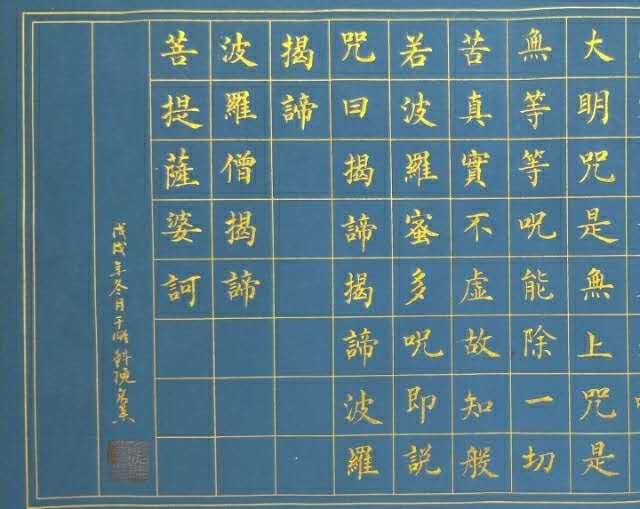 大明咒是無上咒是
無等等呪能除一切
苦真實不虛故知般
若波羅蜜多呪即説
咒曰揭諦揭諦波羅
揭諦
波羅僧揭諦
菩提薩婆訶
戊戌年冬月于